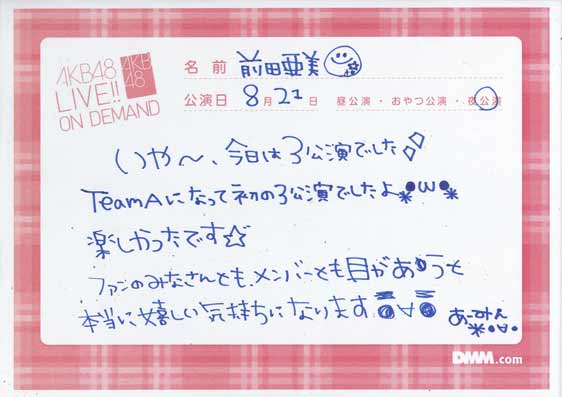 AKB48
LIVE!!
ON DEMAND
AKB
48
名前 前田亜美
公演日 8月21日 昼公演・おやつ公演・夜公演
いや〜、今日は3公演でした
TeamAになって初の3公演でしたよ●ω●
楽しかったです☆
ファンのみなさんとも、メンバーとも目があうと
本当に嬉しい気持ちになります
あーみん
DMM.com